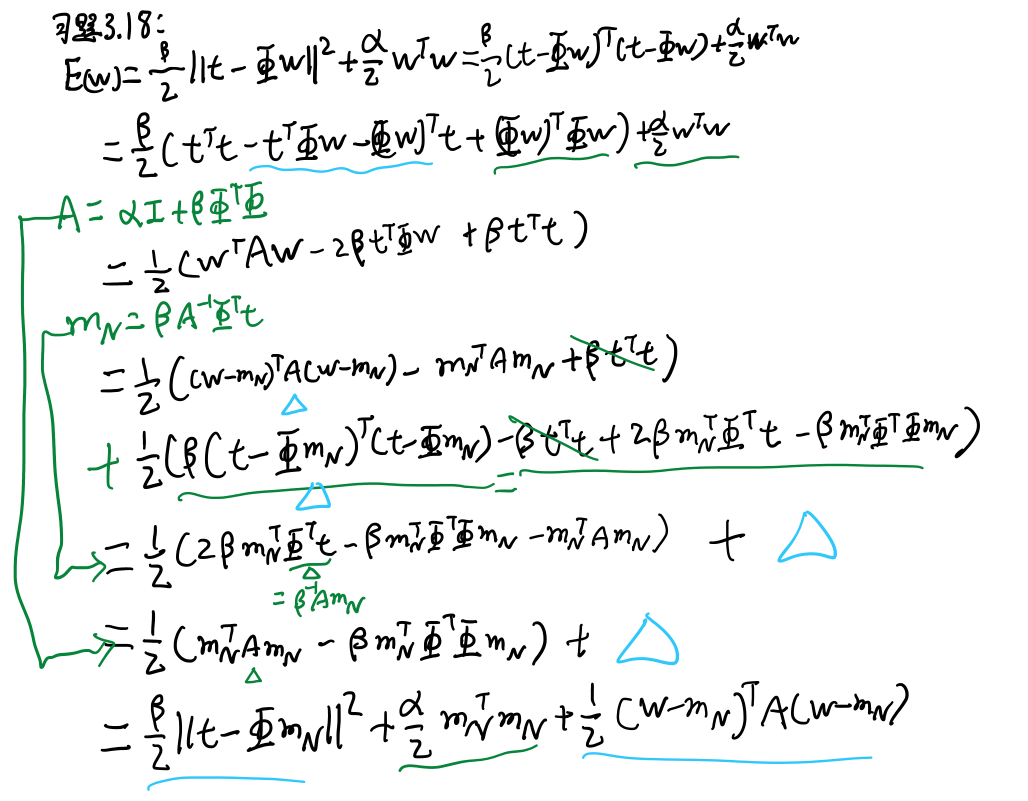 习题3.18:
E(w) = β/2 ||t - Φw||² + α/2 wᵀw = β/2 (t-Φw)ᵀ(t-Φw) + α/2 wᵀw
= β/2 (tᵀt - tᵀΦw - (Φw)ᵀt + (Φw)ᵀΦw) + α/2 wᵀw
A = αI + βΦᵀΦ
= 1/2 (wᵀAw - 2βtᵀΦw + βtᵀt)
m_N = βA⁻¹Φᵀt
= 1/2 ((w-m_N)ᵀA(w-m_N) - m_NᵀAm_N + βtᵀt)
+ 1/2 (β(t-Φm_N)ᵀ(t-Φm_N) - βtᵀt + 2βm_NᵀΦᵀt - βm_NᵀΦᵀΦm_N)
=
= 1/2 (2βm_NᵀΦᵀt - βm_NᵀΦᵀΦm_N - m_NᵀAm_N) + △
= β⁻¹Am_N
= 1/2 (m_NᵀAm_N - βm_NᵀΦᵀΦm_N) + △
= β/2 ||t - Φm_N||² + α/2 m_Nᵀm_N + 1/2 (w-m_N)ᵀA(w-m_N)